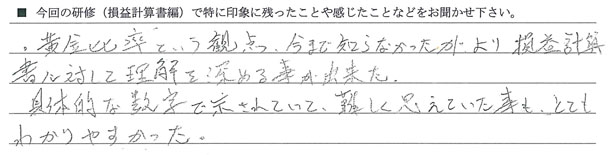 ■ 今回の研修（損益計算書編）で特に印象に残ったことや感じたことなどをお聞かせ下さい。
・黄金比率という観点、今まで知らなかったが、より損益計算
書に対して理解を深める事が出来た。
具体的な数字で示されていて、難しく思えていた事も、とても
わかりやすかった。